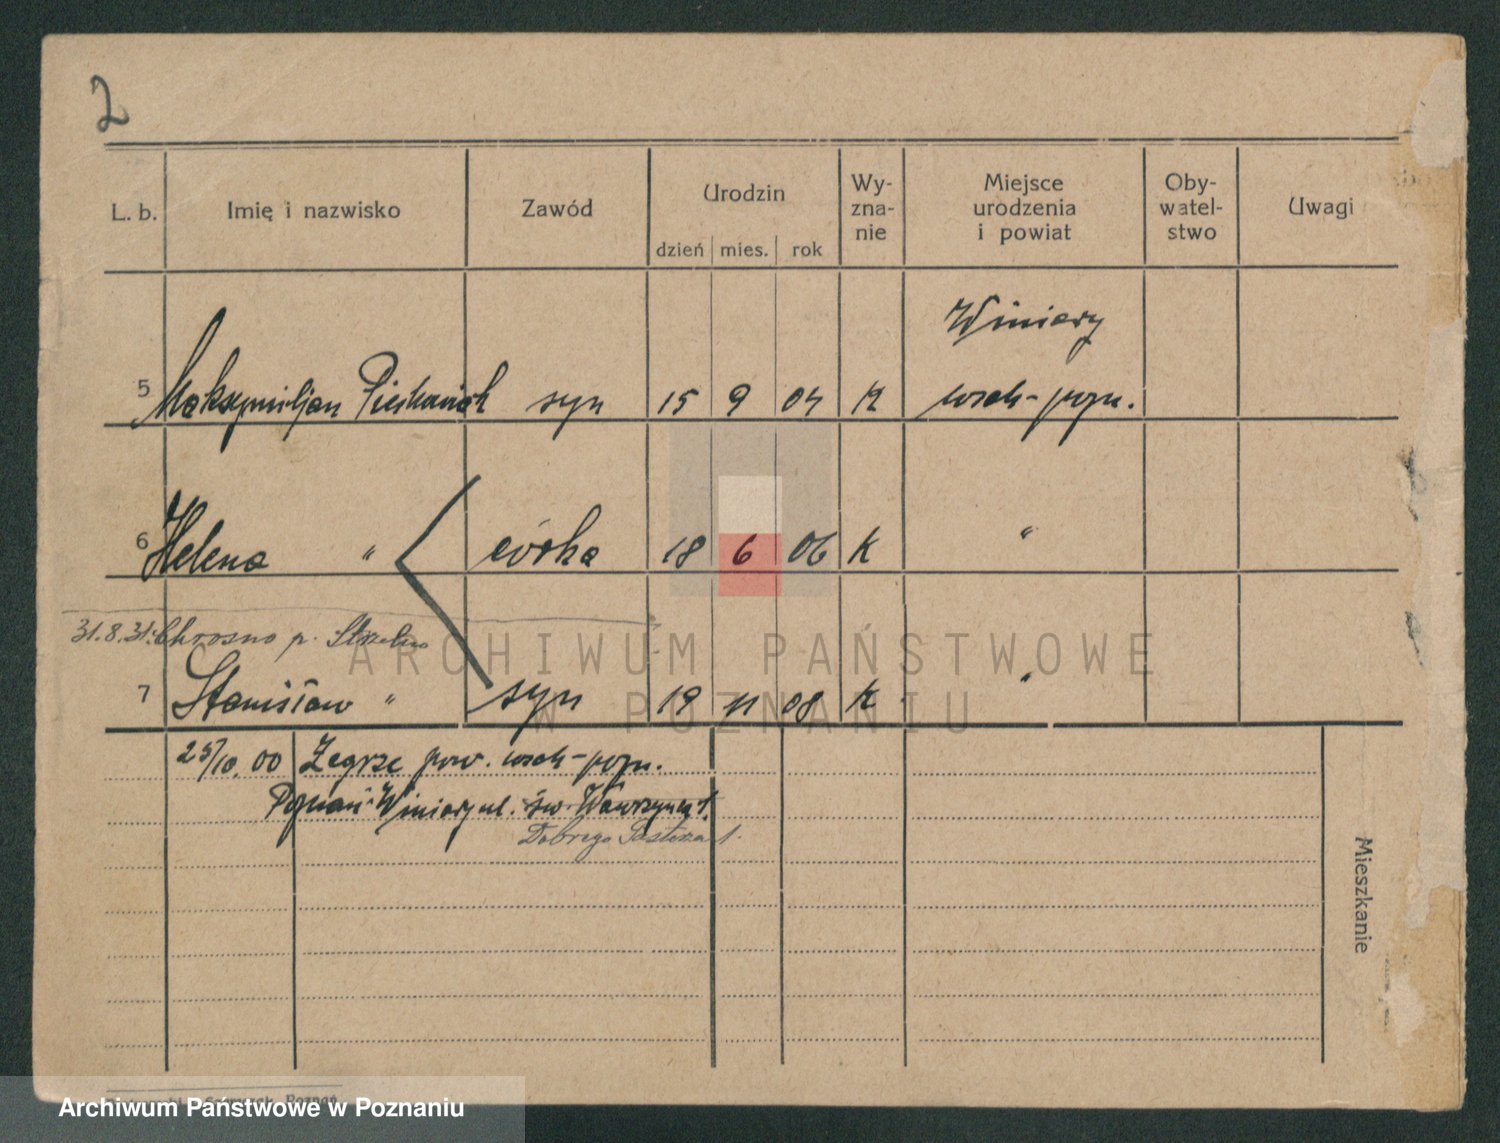 2
L. b. Imię i nazwisko Zawód Urodzin dzień mies. rok Wy-zna-nie Miejsce urodzenia i powiat Oby-watel-stwo Uwagi
Winiary
5 Maksymiljan syn 15 9 04 K wsch-pozn.
6 Helena " córka 18 6 06 K "
31.8.31. Chrosno p. Strzelno
7 Stanisław " syn 19 11 08 K "
25/10.00 Zegrze pow. wsch-pozn.
Poznań-Winiary ul. św. Wawrzyńca 1.
Dobrego Pasterza 1.
Mieszkanie
ARCHIWUM PAŃSTWOWE
W POZNANIU
Poznań
Archiwum Państwowe w Poznaniu